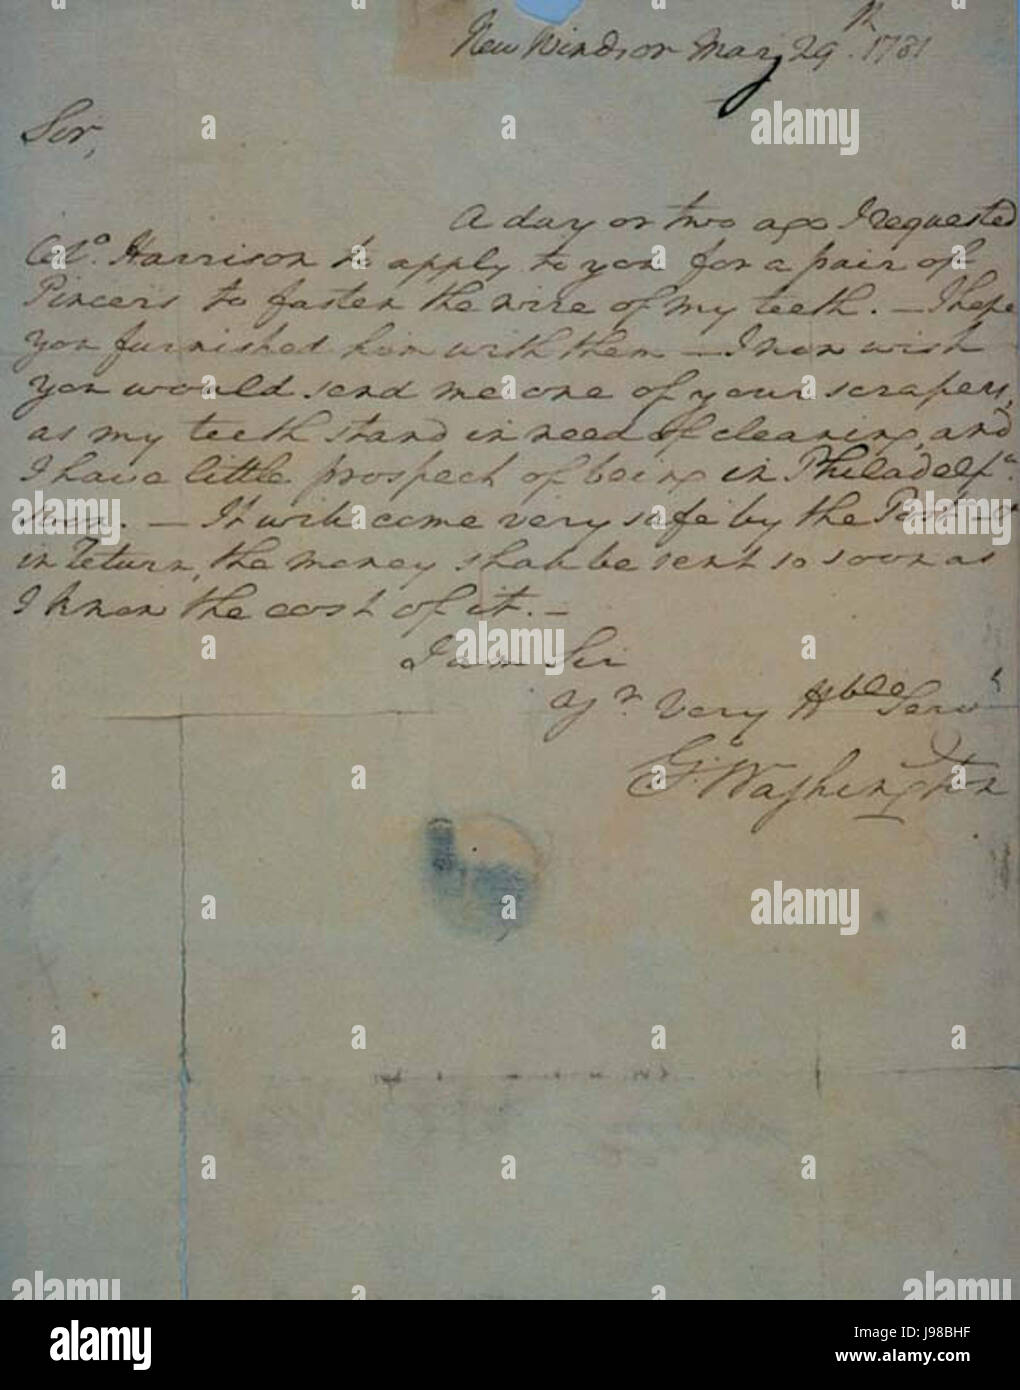 New Windsor May 29th. 1781
Sir,
A day or two ago I requested
Colo. Harrison to apply to you for a pair of
Pincers to fasten the wire of my teeth. — I hope
you furnished him with them — I now wish
you would send me one of your scrapers,
as my teeth stand in need of cleaning, and
I have little prospect of being in Philadelpa.
soon. — It will come very safe by the Post — &
in return, the money shall be sent so soon as
I know the cost of it. —
I am Sir
Yr. Very Hble Servt
Go. Washington
alamy
Image ID: J98BHF
www.alamy.com